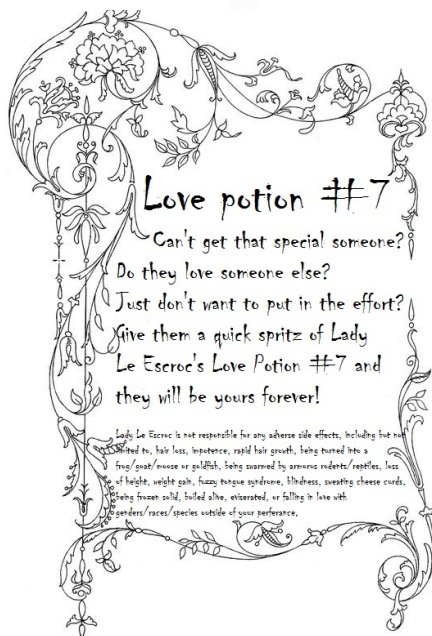 Love potion #7
Can't get that special someone?
Do they love someone else?
Just don't want to put in the effort?
Give them a quick spritz of Lady
Le Escroc's Love Potion #7 and
they will be yours forever!
Lady Le Escroc is not responsible for any adverse side effects, including but not
limited to, hair loss, impotence, rapid hair growth, being turned into a
frog/goat/moose or goldfish, being swarmed by armorus rodents/reptiles, loss
of height, weight gain, fuzzy tongue syndrome, blindness, sweating cheese curds,
being frozen solid, boiled alive, eviserated, or falling in love with
genders/races/species outside of your perferance.